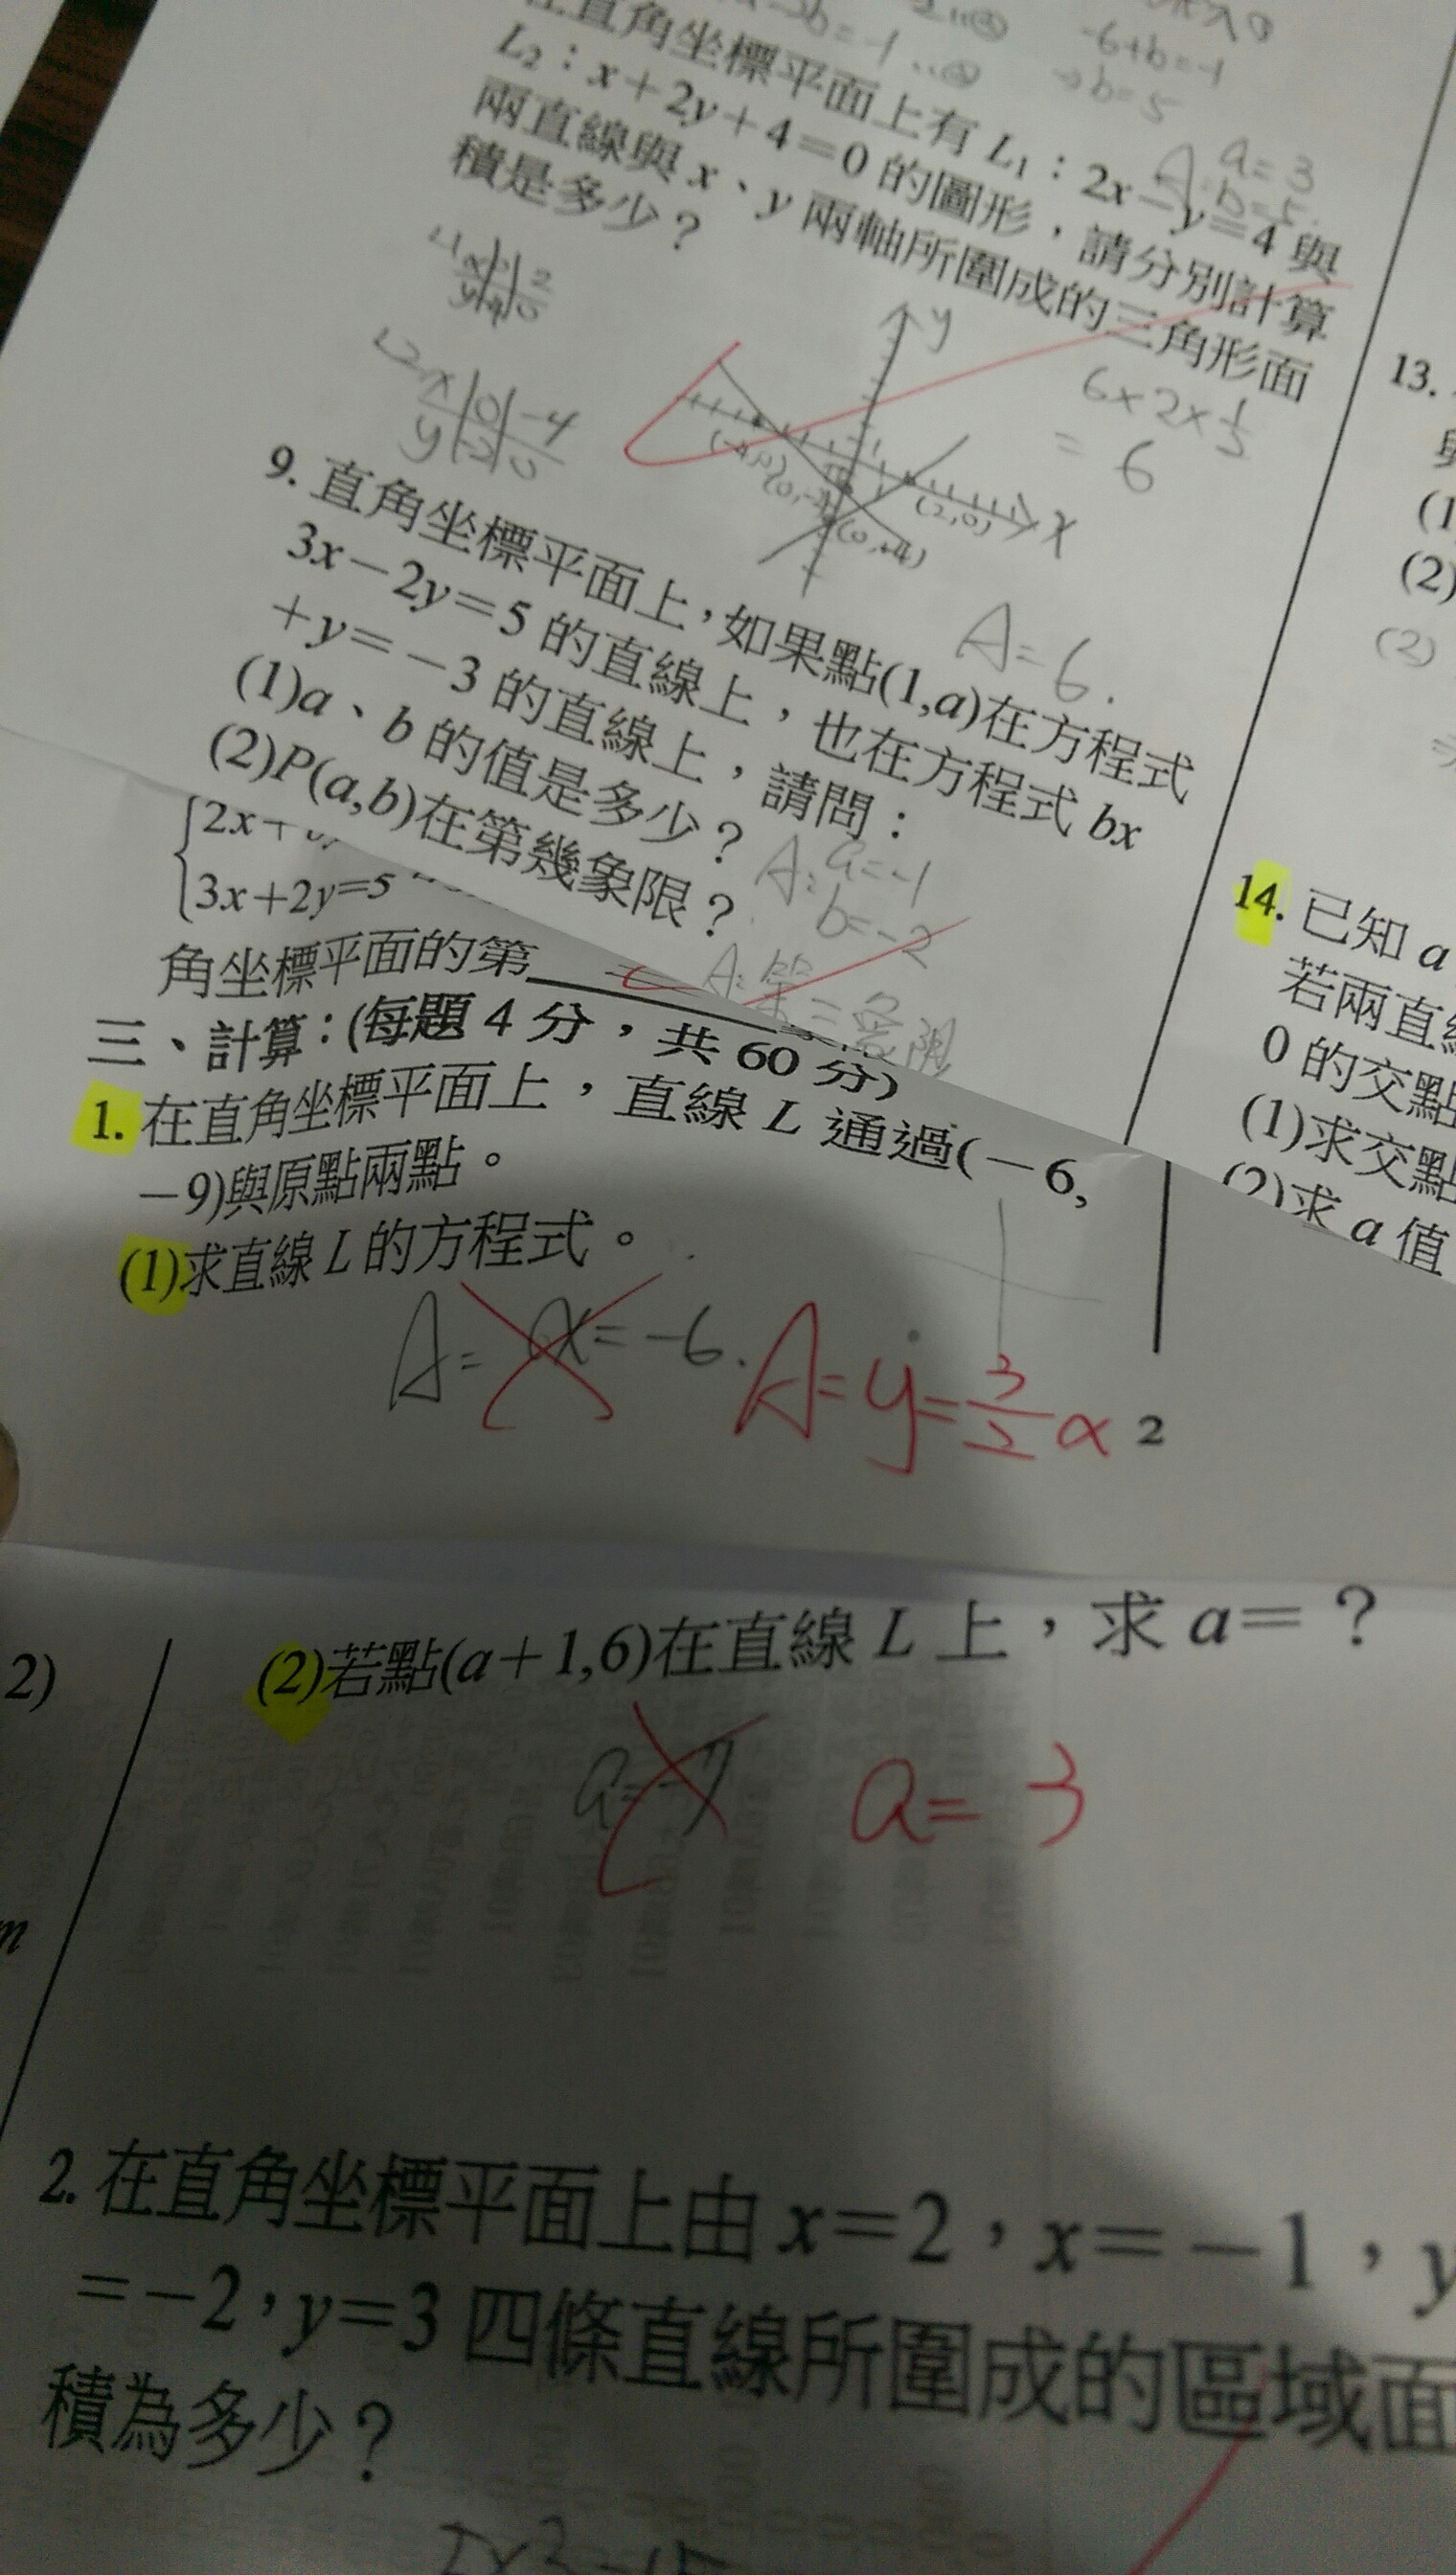 -6+b=-1
→b=5
直角坐標平面上有 L₁：2x－y=4 與
L₂：x+2y+4=0 的圖形，請分別計算
兩直線與 x、y 兩軸所圍成的三角形面
積是多少？
a=3
A: b=5.
y
x
(2,0)
6×2×½
= 6
A=6.
9. 直角坐標平面上，如果點(1,a)在方程式
3x－2y=5 的直線上，也在方程式 bx
+y=－3 的直線上，請問：
(1)a、b 的值是多少？
A: a=-1
b=-2
(2)P(a,b)在第幾象限？
A: 第三象限
3x+2y=5
角坐標平面的第
三、計算：(每題 4 分，共 60 分)
1. 在直角坐標平面上，直線 L 通過(－6,
－9)與原點兩點。
(1)求直線 L 的方程式。
A= x=-6. A= y=3/2 x
2
(2)若點(a＋1,6)在直線 L 上，求 a=？
a=-7 a=3
2. 在直角坐標平面上由 x=2，x=－1，y
=－2，y=3 四條直線所圍成的區域面
積為多少？
13.
(1
(2)
(2)
14. 已知 a
若兩直線
0 的交點
(1)求交點
(2)求 a 值
2)